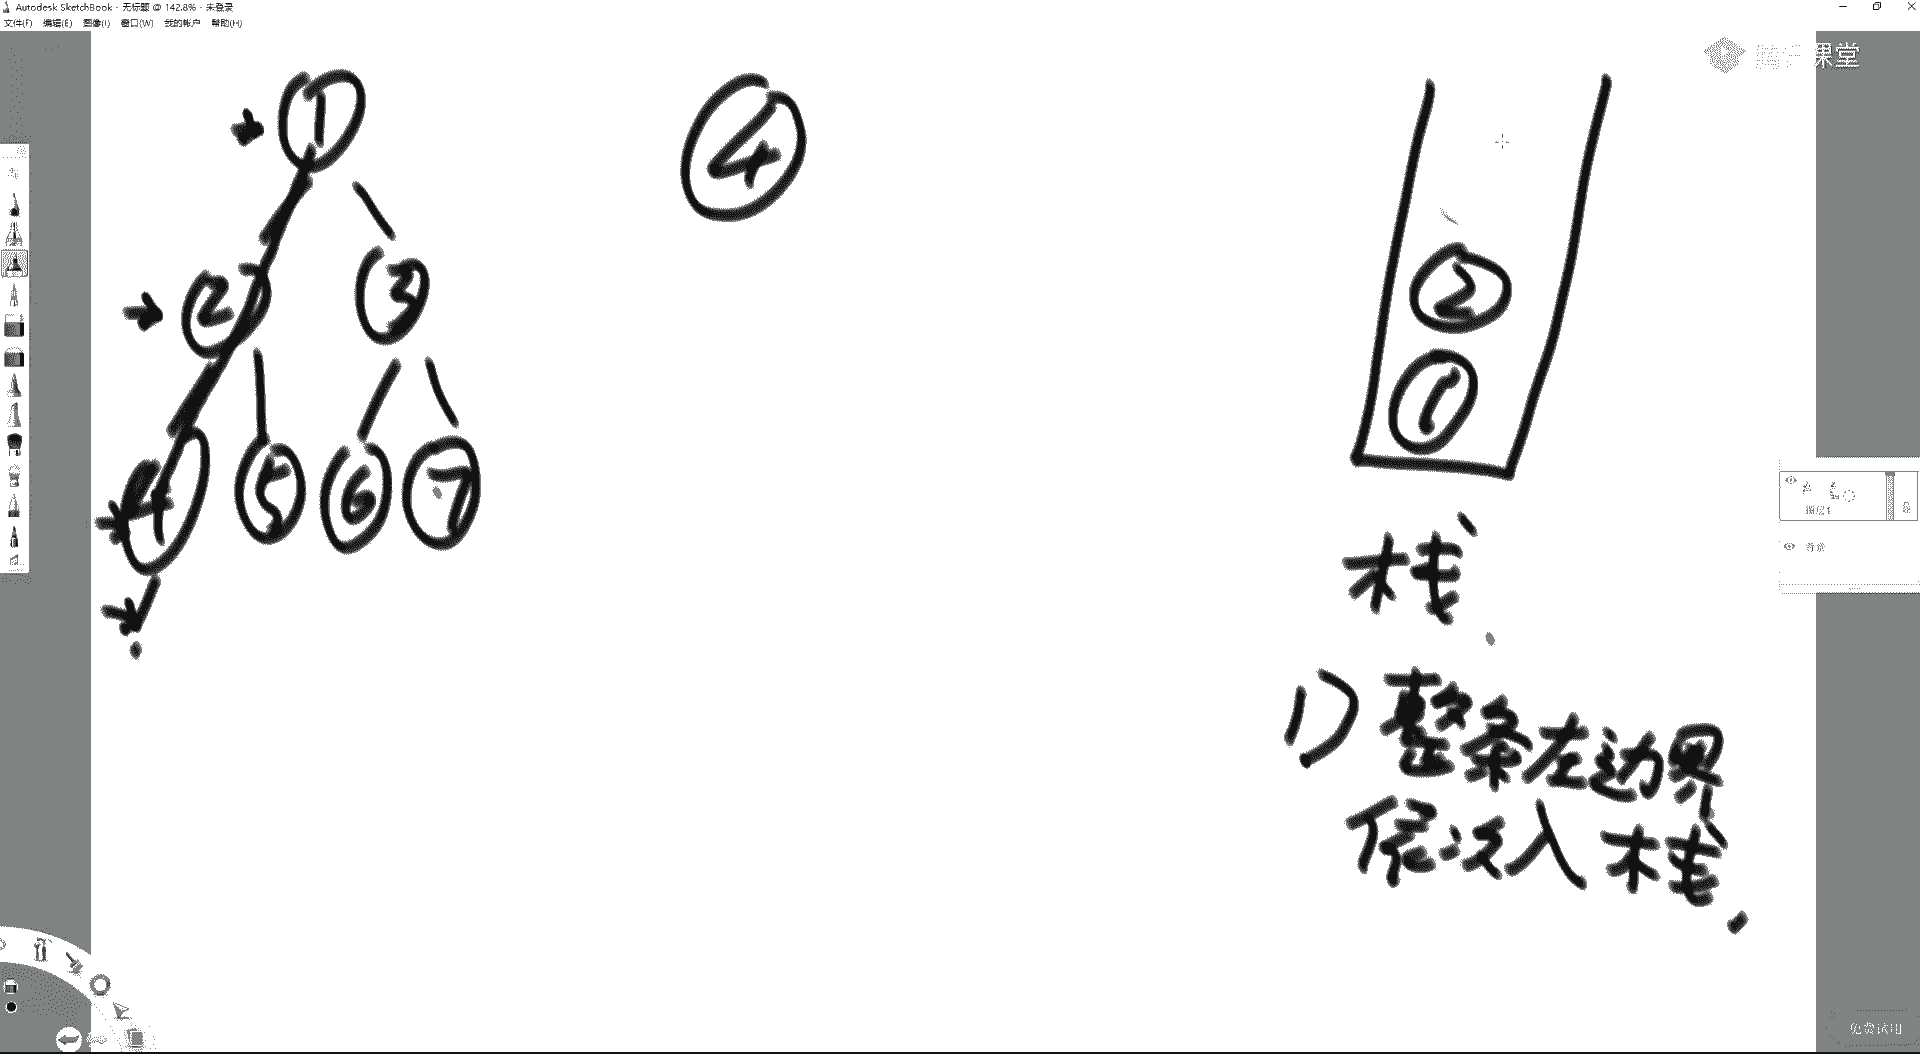 Autodesk SketchBook - 无标题 @ 142.8% - 未登录
文件(F) 编辑(E) 图像(I) 窗口(W) 我的帐户 帮助(H)
课堂
1
4
2
3
2
1
4
5
6
7
栈
1) 整条左边界
依次入栈
图层1
背景
免费试用